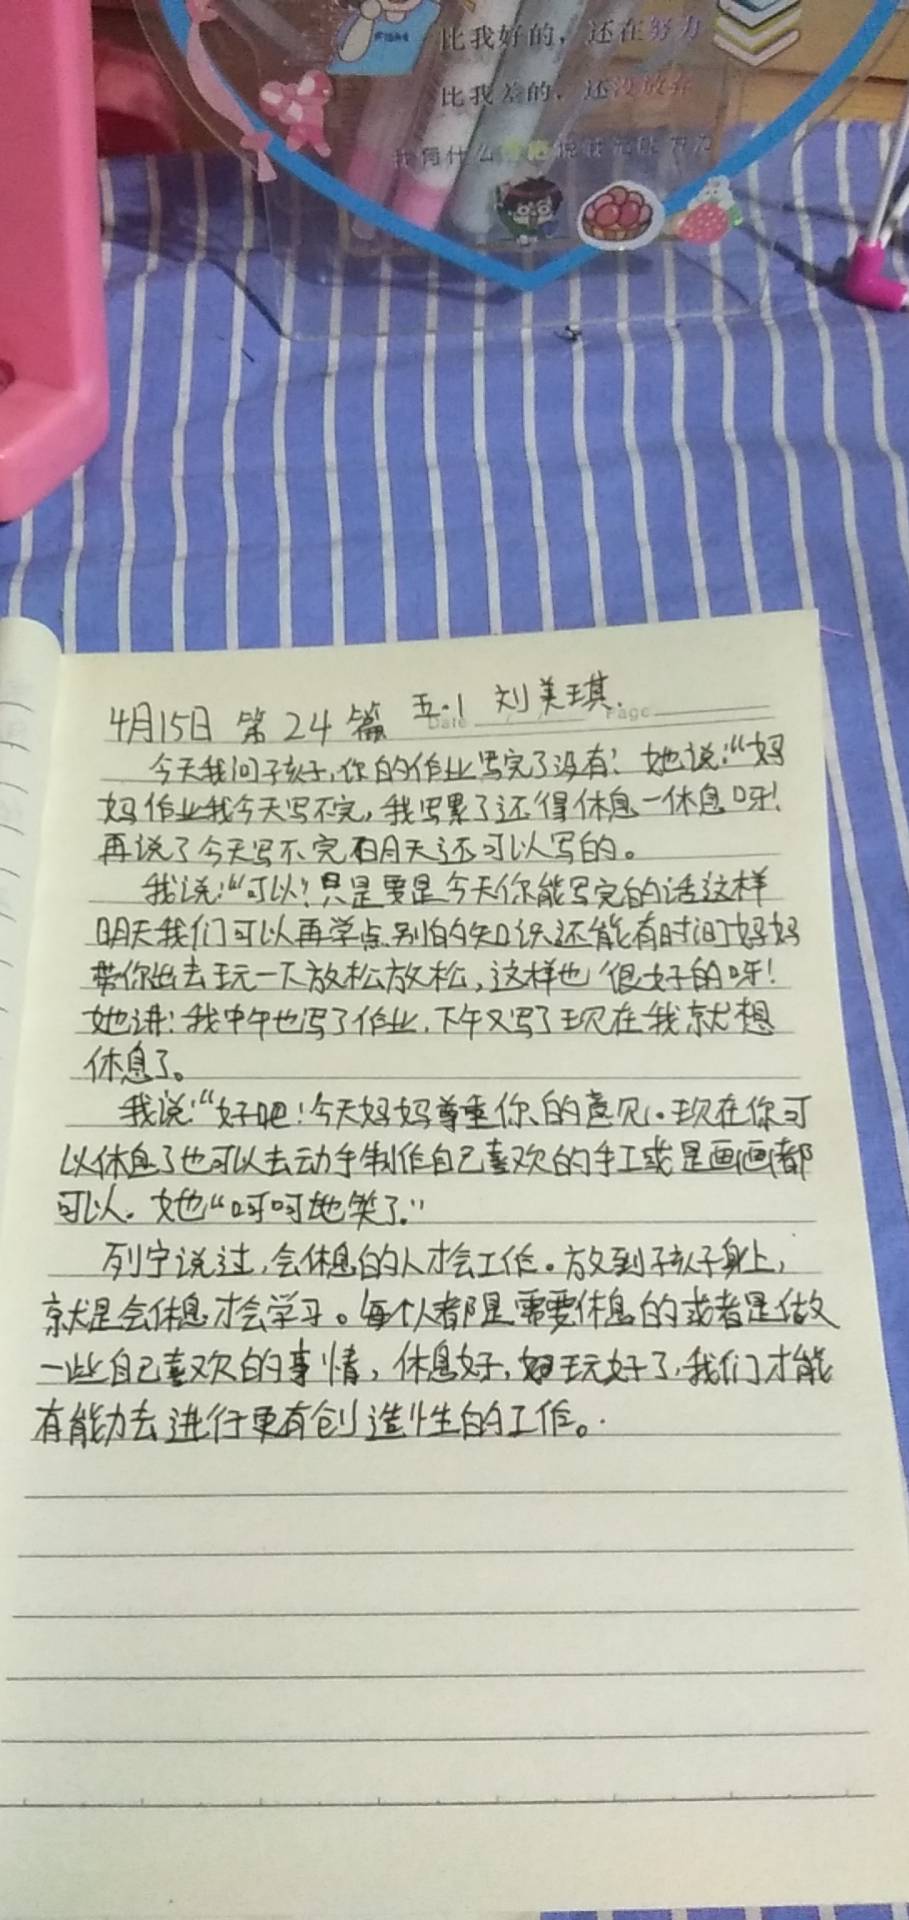 比我好的，还在努力
比我差的，还没放弃
4月15日 第24篇 五·1 刘美琪.
Date Page
今天我问子孩子,你的作业写完了没有？她说:“妈
妈作业我今天写不完,我写累了还得休息一休息呀!
再说了今天写不完明天还可以写的。
我说:“可以!只是要是今天你能写完的话这样
明天我们可以再学点别的的知识还能有时间妈妈
带你出去玩一下放松放松,这样也很好的呀!
她讲:我中午也写了作业.下午又写了现在我就想
休息了。
我说:“好吧!今天妈妈尊重你的意见.现在你可
以休息了也可以去动手制作自己喜欢的手工或是画画都
可以. 她“呵呵地笑了.”
列宁说过,会休息的人才会工作。放到孩子身上,
就是会休息才会学习。每个人都是需要休息的或者是做
一些自己喜欢的事情,休息好,玩好了,我们才能
有能力去进行更有创造性的工作。